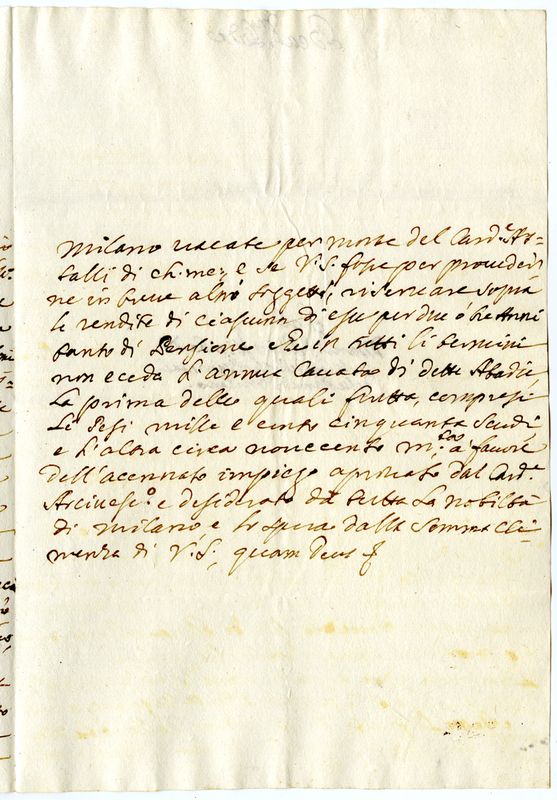 Milano uacate per morte del Card.e As-
talli di ch: me:, e se V. S. fosse per proueder
ne in breue altri soggetti, riseruare sopra
le rendite di ciascuna di esse per due ò tre anni
tanto di Pensione che in tutti li termini
non eceda l'annue Cauata di dette Abadie,
La prima delle quali frutta, compresi
li Pesi mille e cento cinquanta scudi
e l'altra circa nouecento m.ta à fauore
dell'acennato impiego aprouato dal Card.e
Arciuesc.o e desiderato da tutta la nobiltà
di milano, e lo spera dalla somma Cle
menza di V. S., quam Deus